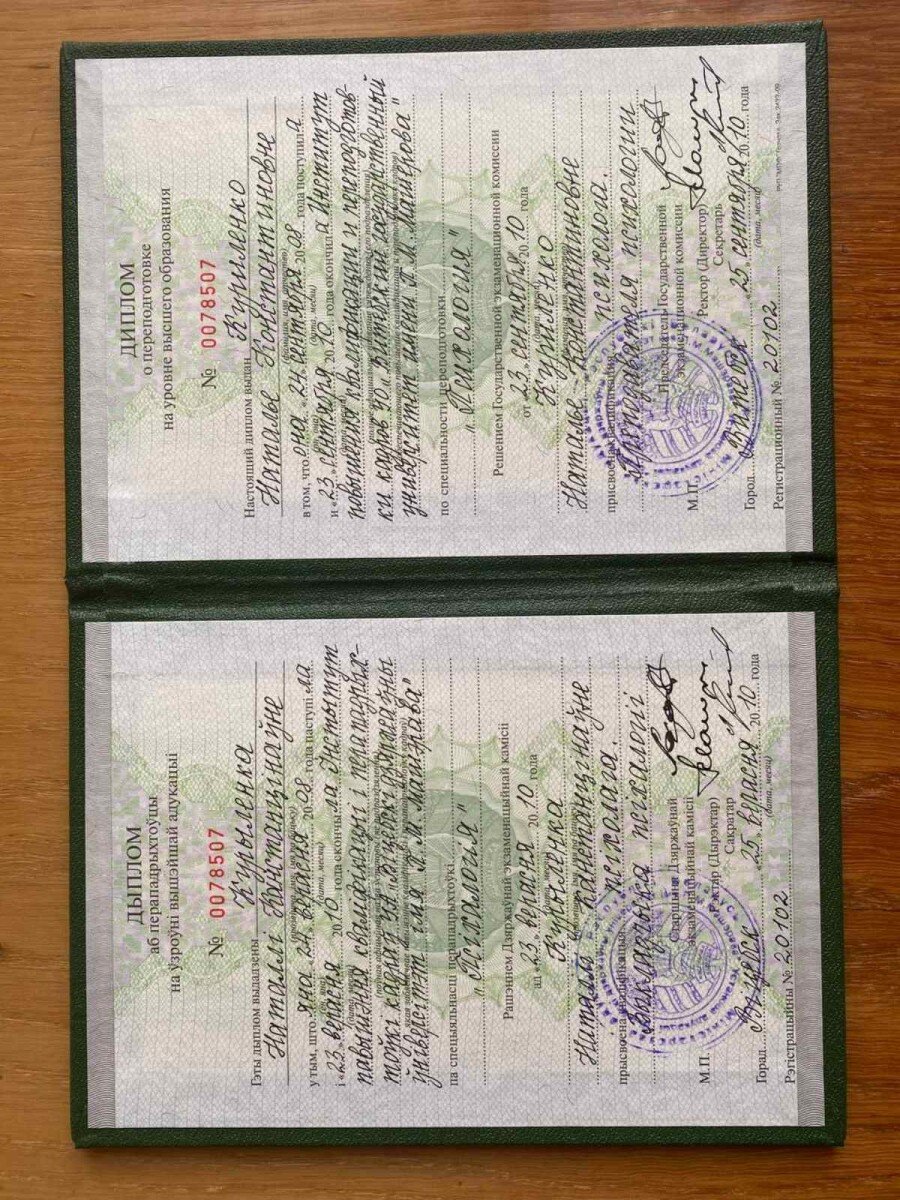 ДЫПЛОМ
аб перападрыхтоўцы
на ўзроўні вышэйшай адукацыі
№ 0078507
Гэты дыплом выдадзены Курыленка
Наталлі Канстанцінаўне
у тым, што яна 24 верасня 2008 года наступі ла
і «23» верасня 2010 года скончы ла Інстытут
павышэння кваліфікацыі і перападрых-
тоўкі кадраў УА "Віцебскі дзяржаўны
ўніверсітэт імя П.М. Машэрава"
па спецыяльнасці перападрыхтоўкі
"Псіхалогія"
Рашэннем Дзяржаўнай экзаменацыйнай камісіі
ад «23» верасня 2010 года
Курыленка
Наталлі Канстанцінаўне
прысвоена кваліфікацыя псіхолага.
Выкладчыка псіхалогіі
Старшыня Дзяржаўнай
экзаменацыйнай камісіі
Рэктар (Дырэктар)
М.П. Сакратар
Горад Віцебск «25» верасня 2010 года
(дата, месяц)
Рэгістрацыйны № 20102
ДИПЛОМ
о переподготовке
на уровне высшего образования
№ 0078507
Настоящий диплом выдан Куриленко
Наталье Константиновне
(фамилия, имя, отчество)
в том, что она «24» сентября 2008 года поступил а
и «23» сентября 2010 года окончил а Институт
повышения квалификации и переподготов
ки кадров УО "Витебский государственный
университет имени П.М. Машерова"
по специальности переподготовки
"Психология"
Решением Государственной экзаменационной комиссии
от «23» сентября 2010 года
Куриленко
Наталье Константиновне
присвоена квалификация психолога.
Преподавателя психологии
Председатель Государственной
экзаменационной комиссии
Ректор (Директор)
М.П. Секретарь
Город Витебск «25» сентября 2010 года
(дата, месяц)
Регистрационный № 20102